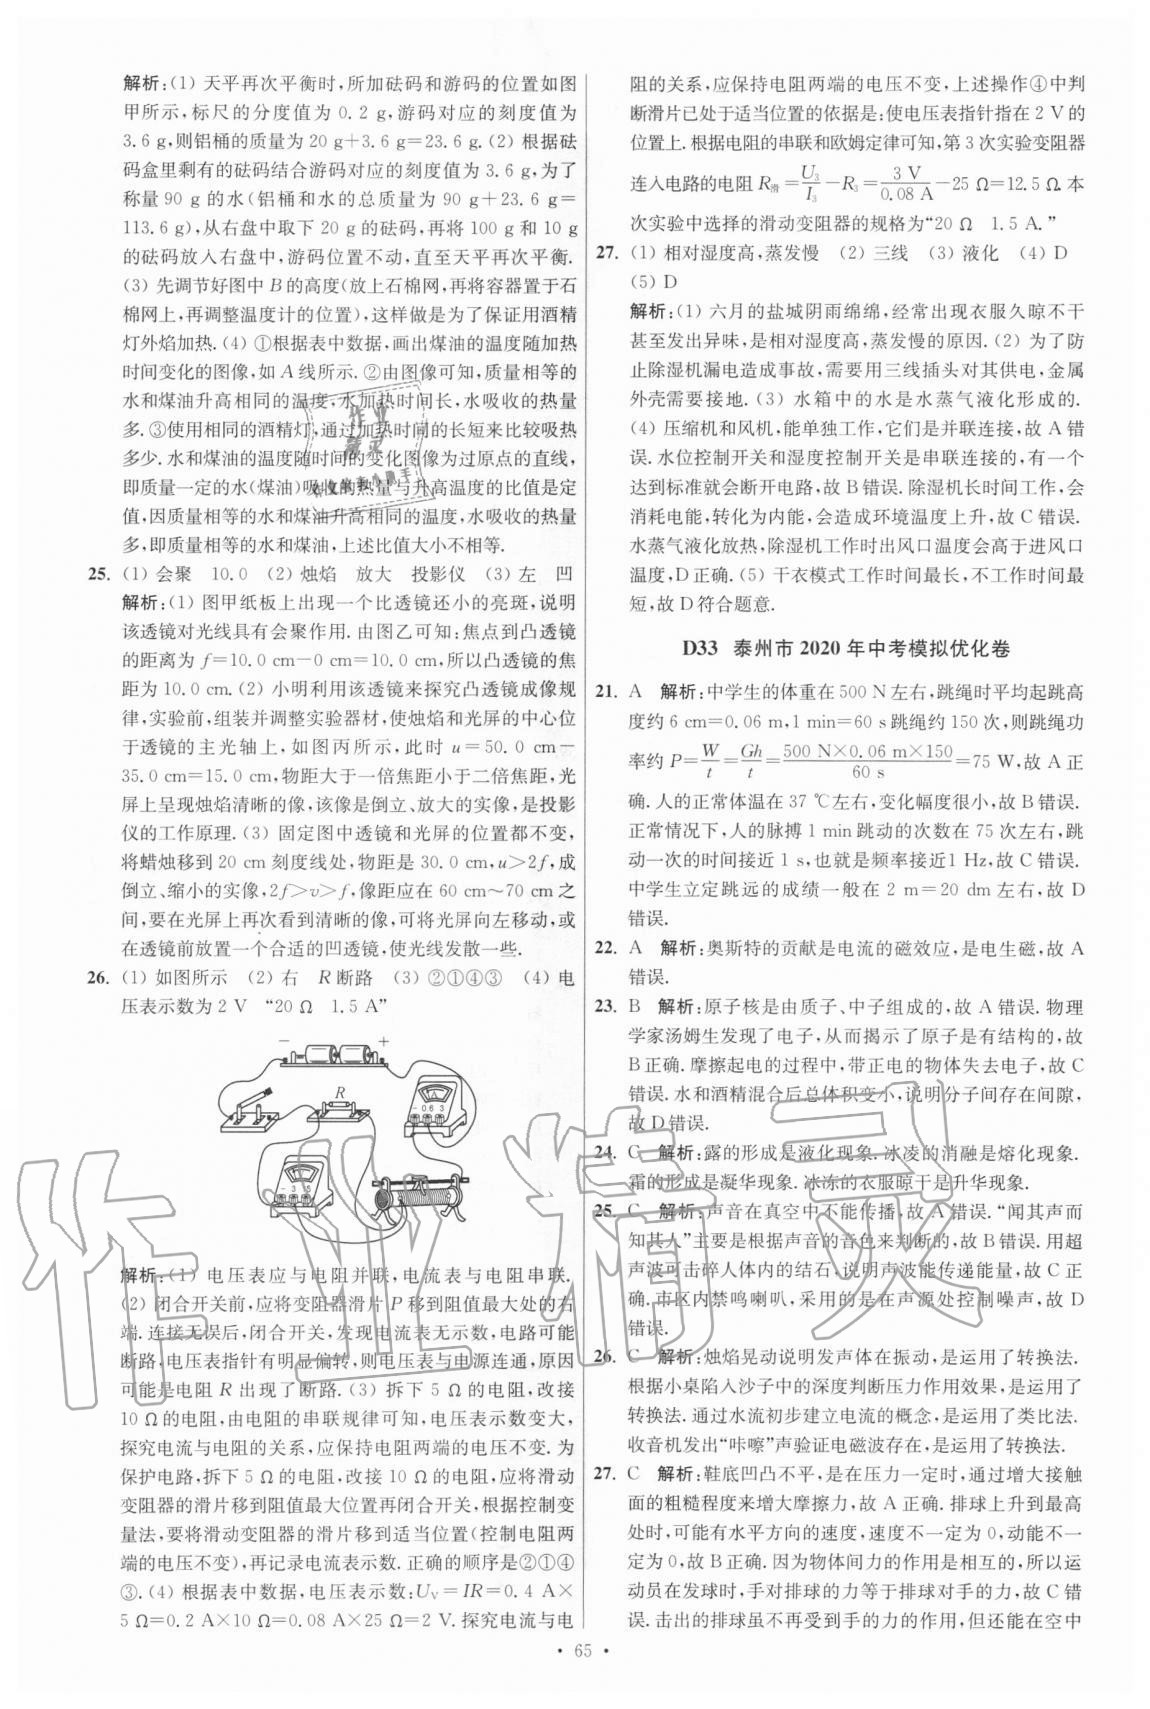 解析:(1) 天平再次平衡时,所加砝码和游码的位置如图
甲所示,标尺的分度值为 0.2 g,游码对应的刻度值为
3.6 g,则铝桶的质量为 20 g+3.6 g=23.6 g. (2) 根据砝
码盒里剩有的砝码结合游码对应的刻度值为 3.6 g,为了
称量 90 g 的水(铝桶和水的总质量为 90 g+23.6 g=
113.6 g),从右盘中取下 20 g 的砝码,再将 100 g 和 10 g
的砝码放入右盘中,游码位置不动,直至天平再次平衡.
(3) 先调节好图中 B 的高度(放上石棉网,再将容器置于石
棉网上,再调整温度计的位置),这样做是为了保证用酒精
灯外焰加热. (4) ①根据表中数据,画出煤油的温度随加热
时间变化的图像,如 A 线所示. ②由图像可知,质量相等的
水和煤油升高相同的温度,水加热时间长,水吸收的热量
多. ③使用相同的酒精灯,通过加热时间的长短来比较吸热
多少. 水和煤油的温度随时间的变化图像为过原点的直线,
即质量一定的水(煤油)吸收的热量与升高温度的比值是定
值,因质量相等的水和煤油升高相同的温度,水吸收的热量
多,即质量相等的水和煤油,上述比值大小不相等.
25. (1) 会聚 10.0 (2) 烛焰 放大 投影仪 (3) 左 凹
解析:(1) 图甲纸板上出现一个比透镜还小的亮斑,说明
该透镜对光线具有会聚作用. 由图乙可知:焦点到凸透镜
的距离为 f=10.0 cm-0 cm=10.0 cm,所以凸透镜的焦
距为 10.0 cm. (2) 小明利用该透镜来探究凸透镜成像规
律,实验前,组装并调整实验器材,使烛焰和光屏的中心位
于透镜的主光轴上,如图丙所示,此时 u=50.0 cm-
35.0 cm=15.0 cm,物距大于一倍焦距小于二倍焦距,光
屏上呈现烛焰清晰的像,该像是倒立、放大的实像,是投影
仪的工作原理. (3) 固定图中透镜和光屏的位置都不变,
将蜡烛移到 20 cm 刻度线处,物距是 30.0 cm,u>2f,成
倒立、缩小的实像,2f>v>f,像距应在 60 cm~70 cm 之
间,要在光屏上再次看到清晰的像,可将光屏向左移动,或
在透镜前放置一个合适的凹透镜,使光线发散一些.
26. (1) 如图所示 (2) 右 R 断路 (3) ②①④③ (4) 电
压表示数为 2 V “20 Ω 1.5 A”
- +
R
- 0.6 3
- 3
解析:(1) 电压表应与电阻并联,电流表与电阻串联.
(2) 闭合开关前,应将变阻器滑片 P 移到阻值最大处的右
端. 连接无误后,闭合开关,发现电流表无示数,电路可能
断路,电压表指针有明显偏转,则电压表与电源连通,原因
可能是电阻 R 出现了断路. (3) 拆下 5 Ω 的电阻,改接
10 Ω 的电阻,由电阻的串联规律可知,电压表示数变大,
探究电流与电阻的关系,应保持电阻两端的电压不变. 为
保护电路,拆下 5 Ω 的电阻,改接 10 Ω 的电阻,应将滑动
变阻器的滑片移到阻值最大位置再闭合开关,根据控制变
量法,要将滑动变阻器的滑片移到适当位置(控制电阻两
端的电压不变),再记录电流表示数. 正确的顺序是②①④
③. (4) 根据表中数据,电压表示数:UV=IR=0.4 A×
5 Ω=0.2 A×10 Ω=0.08 A×25 Ω=2 V. 探究电流与电
阻的关系,应保持电阻两端的电压不变,上述操作④中判
断滑片已处于适当位置的依据是:使电压表指针指在 2 V 的
位置上. 根据电阻的串联和欧姆定律可知,第 3 次实验变阻器
连入电路的电阻 R滑=U3/I3-R3=3 V/0.08 A-25 Ω=12.5 Ω. 本
次实验中选择的滑动变阻器的规格为“20 Ω 1.5 A.”
27. (1) 相对湿度高,蒸发慢 (2) 三线 (3) 液化 (4) D
(5) D
解析:(1) 六月的盐城阴雨绵绵,经常出现衣服久晾不干
甚至发出异味,是相对湿度高,蒸发慢的原因. (2) 为了防
止除湿机漏电造成事故,需要用三线插头对其供电,金属
外壳需要接地. (3) 水箱中的水是水蒸气液化形成的.
(4) 压缩机和风机,能单独工作,它们是并联连接,故 A 错
误. 水位控制开关和湿度控制开关是串联连接的,有一个
达到标准就会断开电路,故 B 错误. 除湿机长时间工作,会
消耗电能,转化为内能,会造成环境温度上升,故 C 错误.
水蒸气液化放热,除湿机工作时出风口温度会高于进风口
温度,D 正确. (5) 干衣模式工作时间最长,不工作时间最
短,故 D 符合题意.
D33 泰州市 2020 年中考模拟优化卷
21. A 解析:中学生的体重在 500 N 左右,跳绳时平均起跳高
度约 6 cm=0.06 m,1 min=60 s 跳绳约 150 次,则跳绳功
率约 P=W/t=Gh/t=500 N×0.06 m×150/60 s=75 W,故 A 正
确. 人的正常体温在 37 ℃左右,变化幅度很小,故 B 错误.
正常情况下,人的脉搏 1 min 跳动的次数在 75 次左右,跳
动一次的时间接近 1 s,也就是频率接近 1 Hz,故 C 错误.
中学生立定跳远的成绩一般在 2 m=20 dm 左右,故 D
错误.
22. A 解析:奥斯特的贡献是电流的磁效应,是电生磁,故 A
错误.
23. B 解析:原子核是由质子、中子组成的,故 A 错误. 物理
学家汤姆生发现了电子,从而揭示了原子是有结构的,故
B 正确. 摩擦起电的过程中,带正电的物体失去电子,故 C
错误. 水和酒精混合后总体积变小,说明分子间存在间隙,
故 D 错误.
24. C 解析:露的形成是液化现象. 冰凌的消融是熔化现象.
霜的形成是凝华现象. 冰冻的衣服晾干是升华现象.
25. C 解析:声音在真空中不能传播,故 A 错误. “闻其声而
知其人”主要是根据声音的音色来判断的,故 B 错误. 用超
声波可击碎人体内的结石,说明声波能传递能量,故 C 正
确. 市区内禁鸣喇叭,采用的是在声源处控制噪声,故 D
错误.
26. C 解析:烛焰晃动说明发声体在振动,是运用了转换法.
根据小桌陷入沙子中的深度判断压力作用效果,是运用了
转换法. 通过水流初步建立电流的概念,是运用了类比法.
收音机发出“咔嚓”声验证电磁波存在,是运用了转换法.
27. C 解析:鞋底凹凸不平,是在压力一定时,通过增大接触
面的粗糙程度来增大摩擦力,故 A 正确. 排球上升到最高
处时,可能有水平方向的速度,速度不一定为 0,动能不一
定为0,故 B 正确. 因为物体间力的作用是相互的,所以运
动员在发球时,手对排球的力等于排球对手的力,故 C 错
误. 击出的排球虽不再受到手的力的作用,但还能在空中
· 65 ·
作业精灵